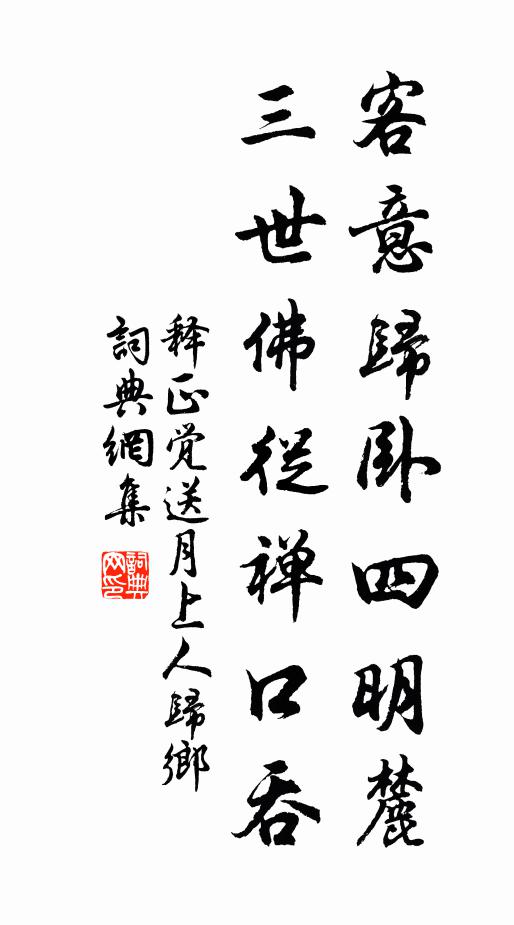 客意歸臥四明麓
三世佛從禅口吞
释正觉送月上人歸鄉
詞典網集
詞典网印